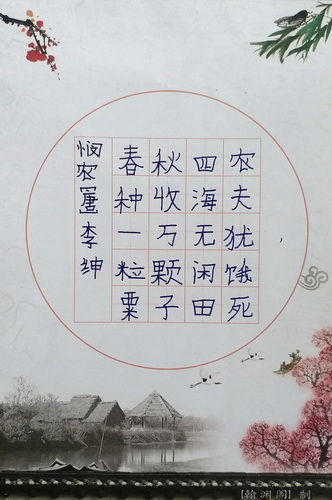 悯农【唐】李绅
春种一粒粟
秋收万颗子
四海无闲田
农夫犹饿死
【翰渊阁】制